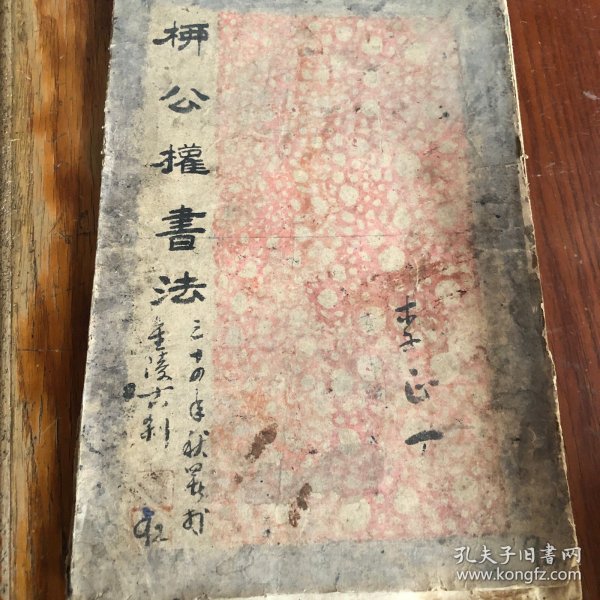 柳公權書法
三十四年秋署於
金陵古刹
李正丁
孔夫子旧书网
www.kongfz.com